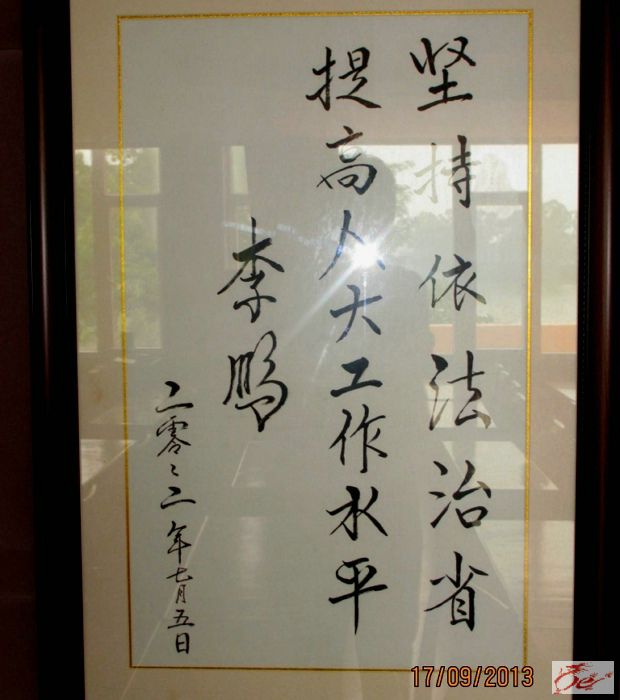 坚持依法治省
提高人大工作水平
李鹏
二零零二年七月五日
17/09/2013